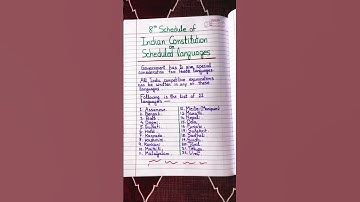 8th Schedule of
Indian Constitution
or
Scheduled languages
Government has to give special
consideration to these languages.
All India competitive examinations
can be written in any of these
languages
Following is the list of 22
languages
1. Assamese
2. Bengali
3. Bodo
4. Dogri
5. Gujrati
6. Hindi
7. Kannada
8. Kashmiri
9. Konkani
10. Maithili
11. Malayalam
12. Meitei (Manipuri)
13. Marathi
14. Nepali
15. Odia
16. Punjabi
17. Sanskrit
18. Santhali
19. Sindhi
20. Tamil
21. Telugu
22. Urdu